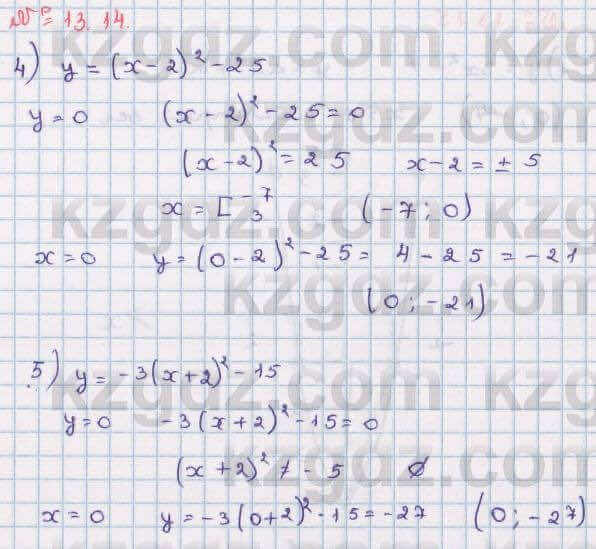 № 13.14.
4) y = (x-2)² - 25
y = 0 (x-2)² - 25 = 0
(x-2)² = 25 x-2 = ± 5
x = [ -7 3 (-7; 0)
x = 0 y = (0-2)² - 25 = 4 - 25 = -21
(0; -21)
5) y = -3(x+2)² - 15
y = 0 -3(x+2)² - 15 = 0
(x+2)² ≠ - 5 ∅
x = 0 y = -3(0+2)² - 15 = -27 (0; -27)
kzgdz.com